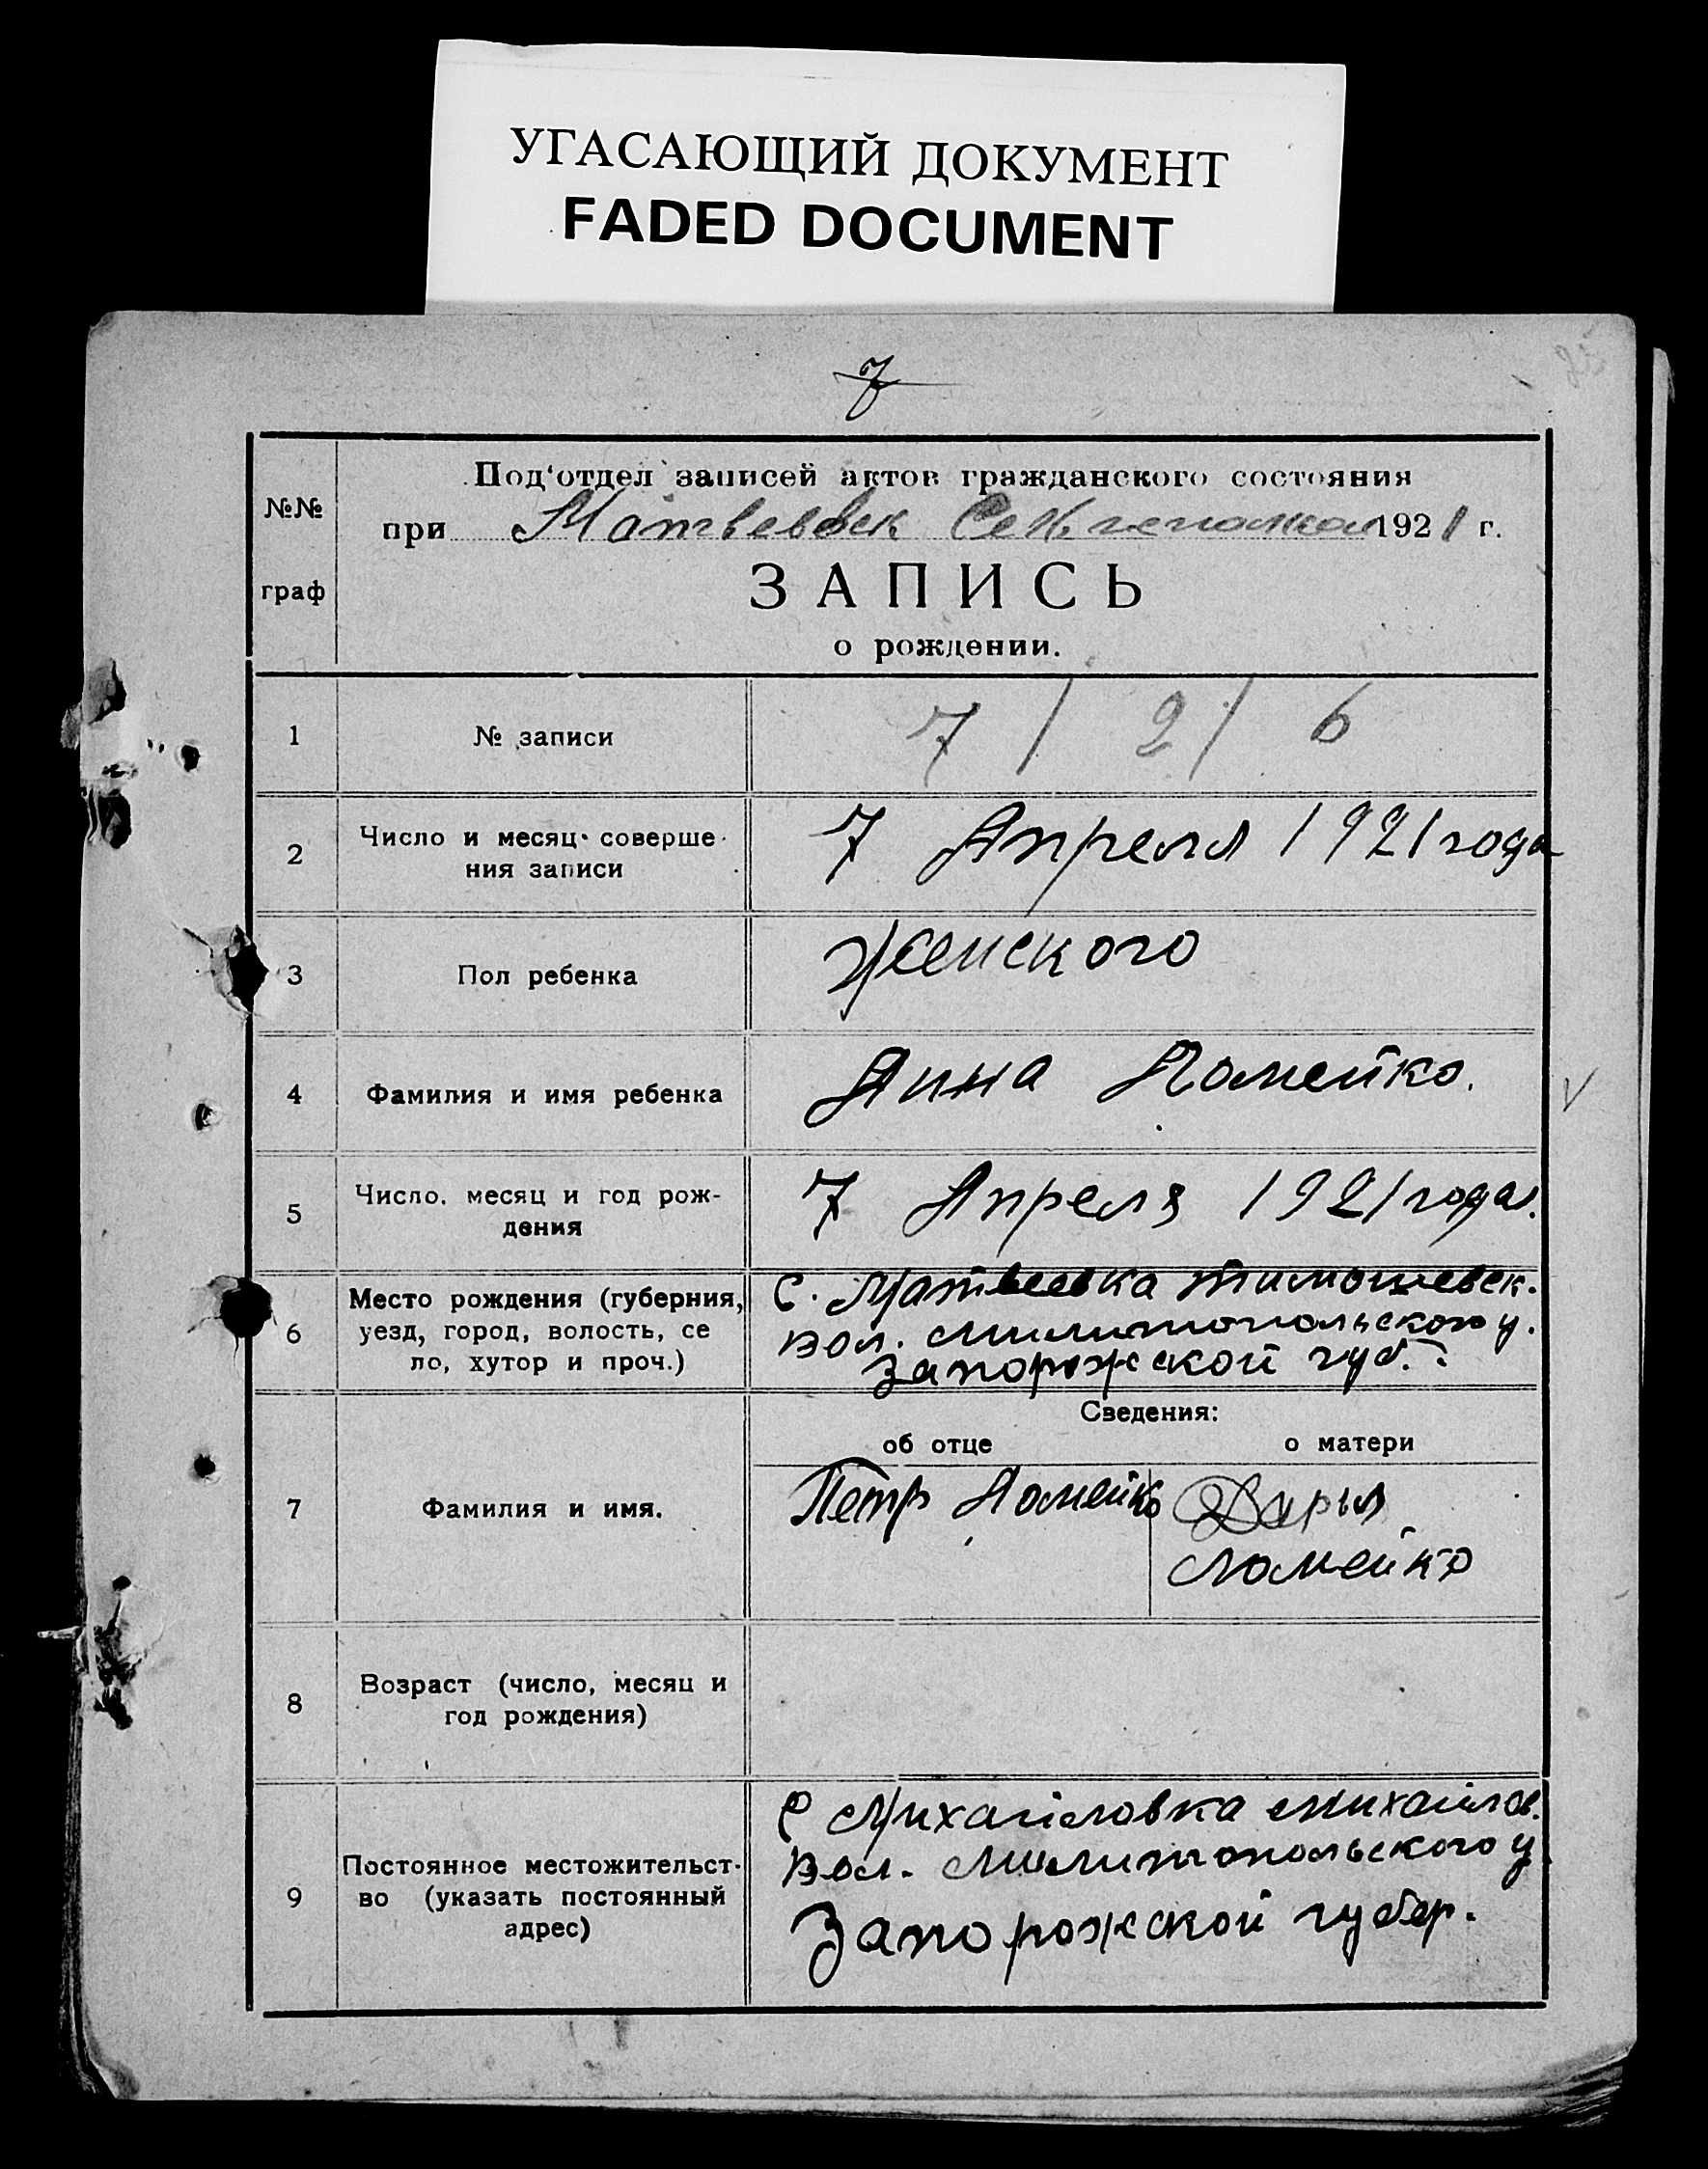 УГАСАЮЩИЙ ДОКУМЕНТ
FADED DOCUMENT
7
№№
граф
Под‘отдел записей актов гражданского состояния
при Матвевск Сель 1921 г.
ЗАПИСЬ
о рождении.
1
№ записи
7 / 2 / 6
2
Число и месяц соверше-
ния записи
7 Апреля 1921 года
3
Пол ребенка
Женского
4
Фамилия и имя ребенка
Анна Ломейко.
5
Число, месяц и год рож-
дения
7 Апреля 1921 года.
6
Место рождения (губерния,
уезд, город, волость, се
ло, хутор и проч.)
С. Матвеевка Тимошевск.
вол. Милитопольского у.
Запорожской губ.
Сведения:
об отце
о матери
7
Фамилия и имя.
Петр Ломейко
Дарья
Ломейко
8
Возраст (число, месяц и
год рождения)
9
Постоянное местожительст-
во (указать постоянный
адрес)
С Михайловка Михайлов.
вол. Милитопольского у
Запорожской губер.